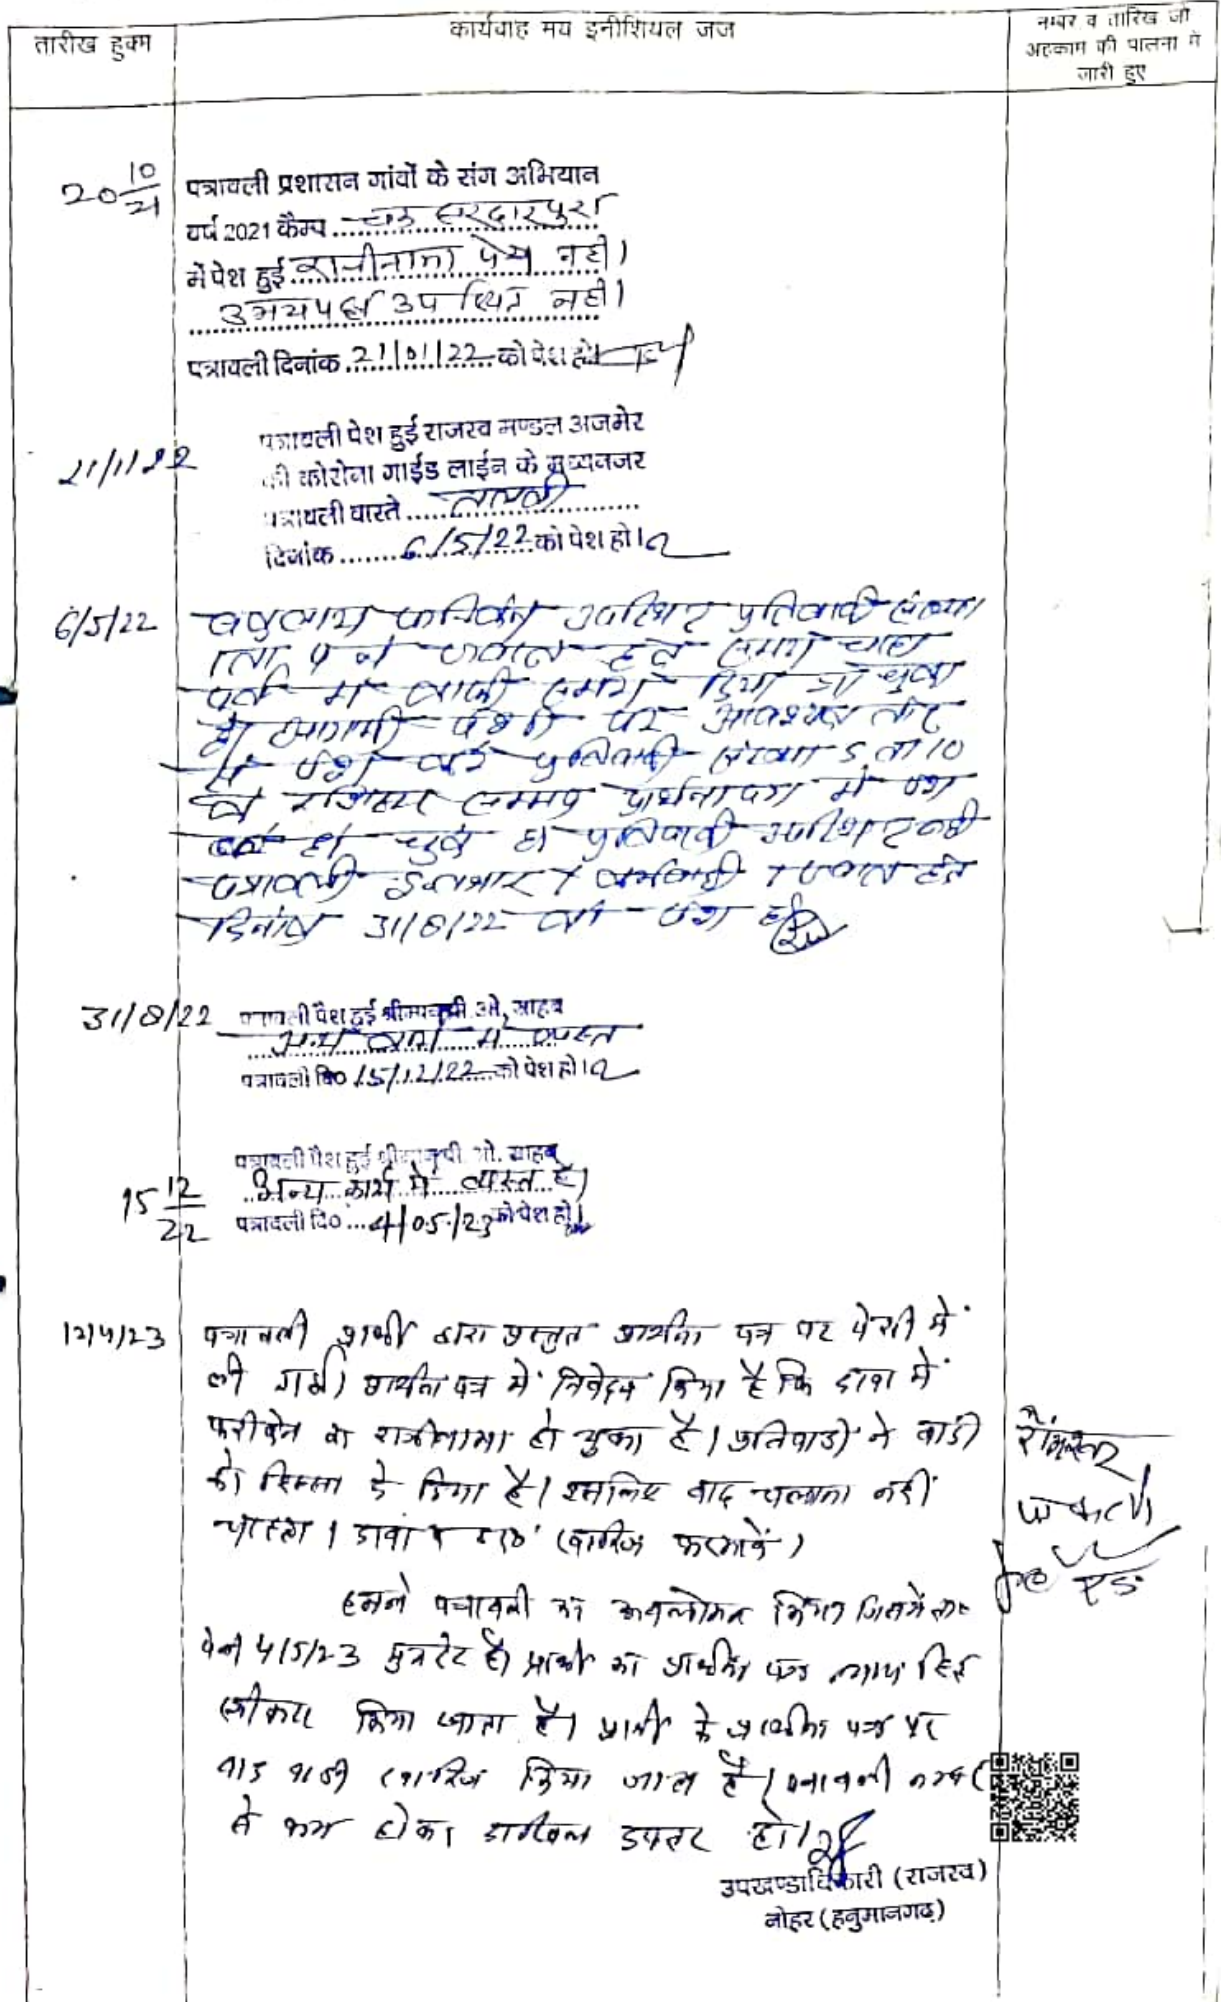 तारीख हुक्म
कार्यवाह मय इनीशियल जज
नम्बर व तारिख जो
अहकाम की पालना में
जारी हुए
20 10/21
पत्रावली प्रशासन गांवों के संग अभियान
वर्ष 2021 कैम्प ........ चक सरदारपुरा
में पेश हुई राजीनामा पेश नही।
उभयपक्ष उपस्थित नही।
पत्रावली दिनांक 21/01/22 को पेश हो।
21/1/22
पत्रावली पेश हुई राजस्व मण्डल अजमेर
की कोरोना गाईड लाईन के मध्यनजर
पत्रावली वास्ते ........ तलबी
दिनांक ........ 6/5/22 को पेश हो।
6/5/22
उपस्थित प्रतिवादी संख्या
समय चाहा
पूर्व में काफी समय दिया जा चुका
है। आगामी पेशी पर आवश्यक तौर
से पेश करे प्रतिवादी संख्या 5 ता 10
के रजिस्टर सम्मन प्रार्थना पत्र में पेश
हो चुके है। प्रतिवादी उपस्थित नही
पत्रावली इन्तजार हेतु
दिनांक 31/8/22 को पेश हो
31/8/22
पत्रावली पेश हुई श्रीमान पी. ओ. साहब
अन्य कार्य में व्यस्त
पत्रावली दि० 15/12/22 को पेश हो।
15 12/22
पत्रावली पेश हुई श्रीमान पी. ओ. साहब
अन्य कार्य में व्यस्त है।
पत्रावली दि० ... 4/05/23 को पेश हो।
12/4/23
पत्रावली प्रार्थी द्वारा प्रस्तुत प्रार्थना पत्र पर पेशी में
ली गई। प्रार्थना पत्र में निवेदन किया है कि दावा में
फरीकेन का राजीनामा हो चुका है। प्रतिवादी ने वादी
को हिस्सा दे दिया है। इसलिए वाद चलाना नहीं
चाहता। दावा खारिज फरमावें।
हमने पत्रावली का अवलोकन किया जिसमें ता०
पेशी 4/5/23 मुकरर है। प्रार्थी का प्रार्थना पत्र न्याय हित
स्वीकार किया जाता है। प्रार्थी के प्रार्थना पत्र पर
वाद वादी खारिज किया जाता है। पत्रावली नम्बर
से कम होकर दाखिल दफ्तर हो।
उपखण्डाधिकारी (राजस्व)
नोहर (हनुमानगढ़)